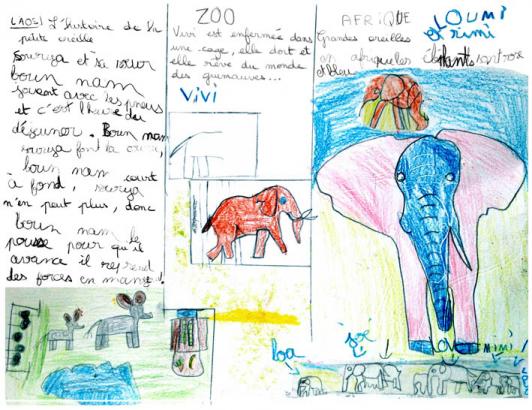 (LAOS) L'histoire de la
petite oreille
sourya et sa sœur
boun nam
jouent avec les pneus
et c'est l'heure du
déjeuner. Boun nam
sourya font la course,
boun nam court
à fond, sourya
n'en peut plus, donc
boun nam le
pousse pour qu'il
avance il reprend
des forces en mangeant.
ZOO
Vivi est enfermée dans
une cage, elle dort et
elle rêve du monde
des guimauves...
VIVI
AFRIQUE
LOUMI
et rimi
Grandes oreilles
en afrique les éléphants sont rose
et bleu
loa
joé
mimi